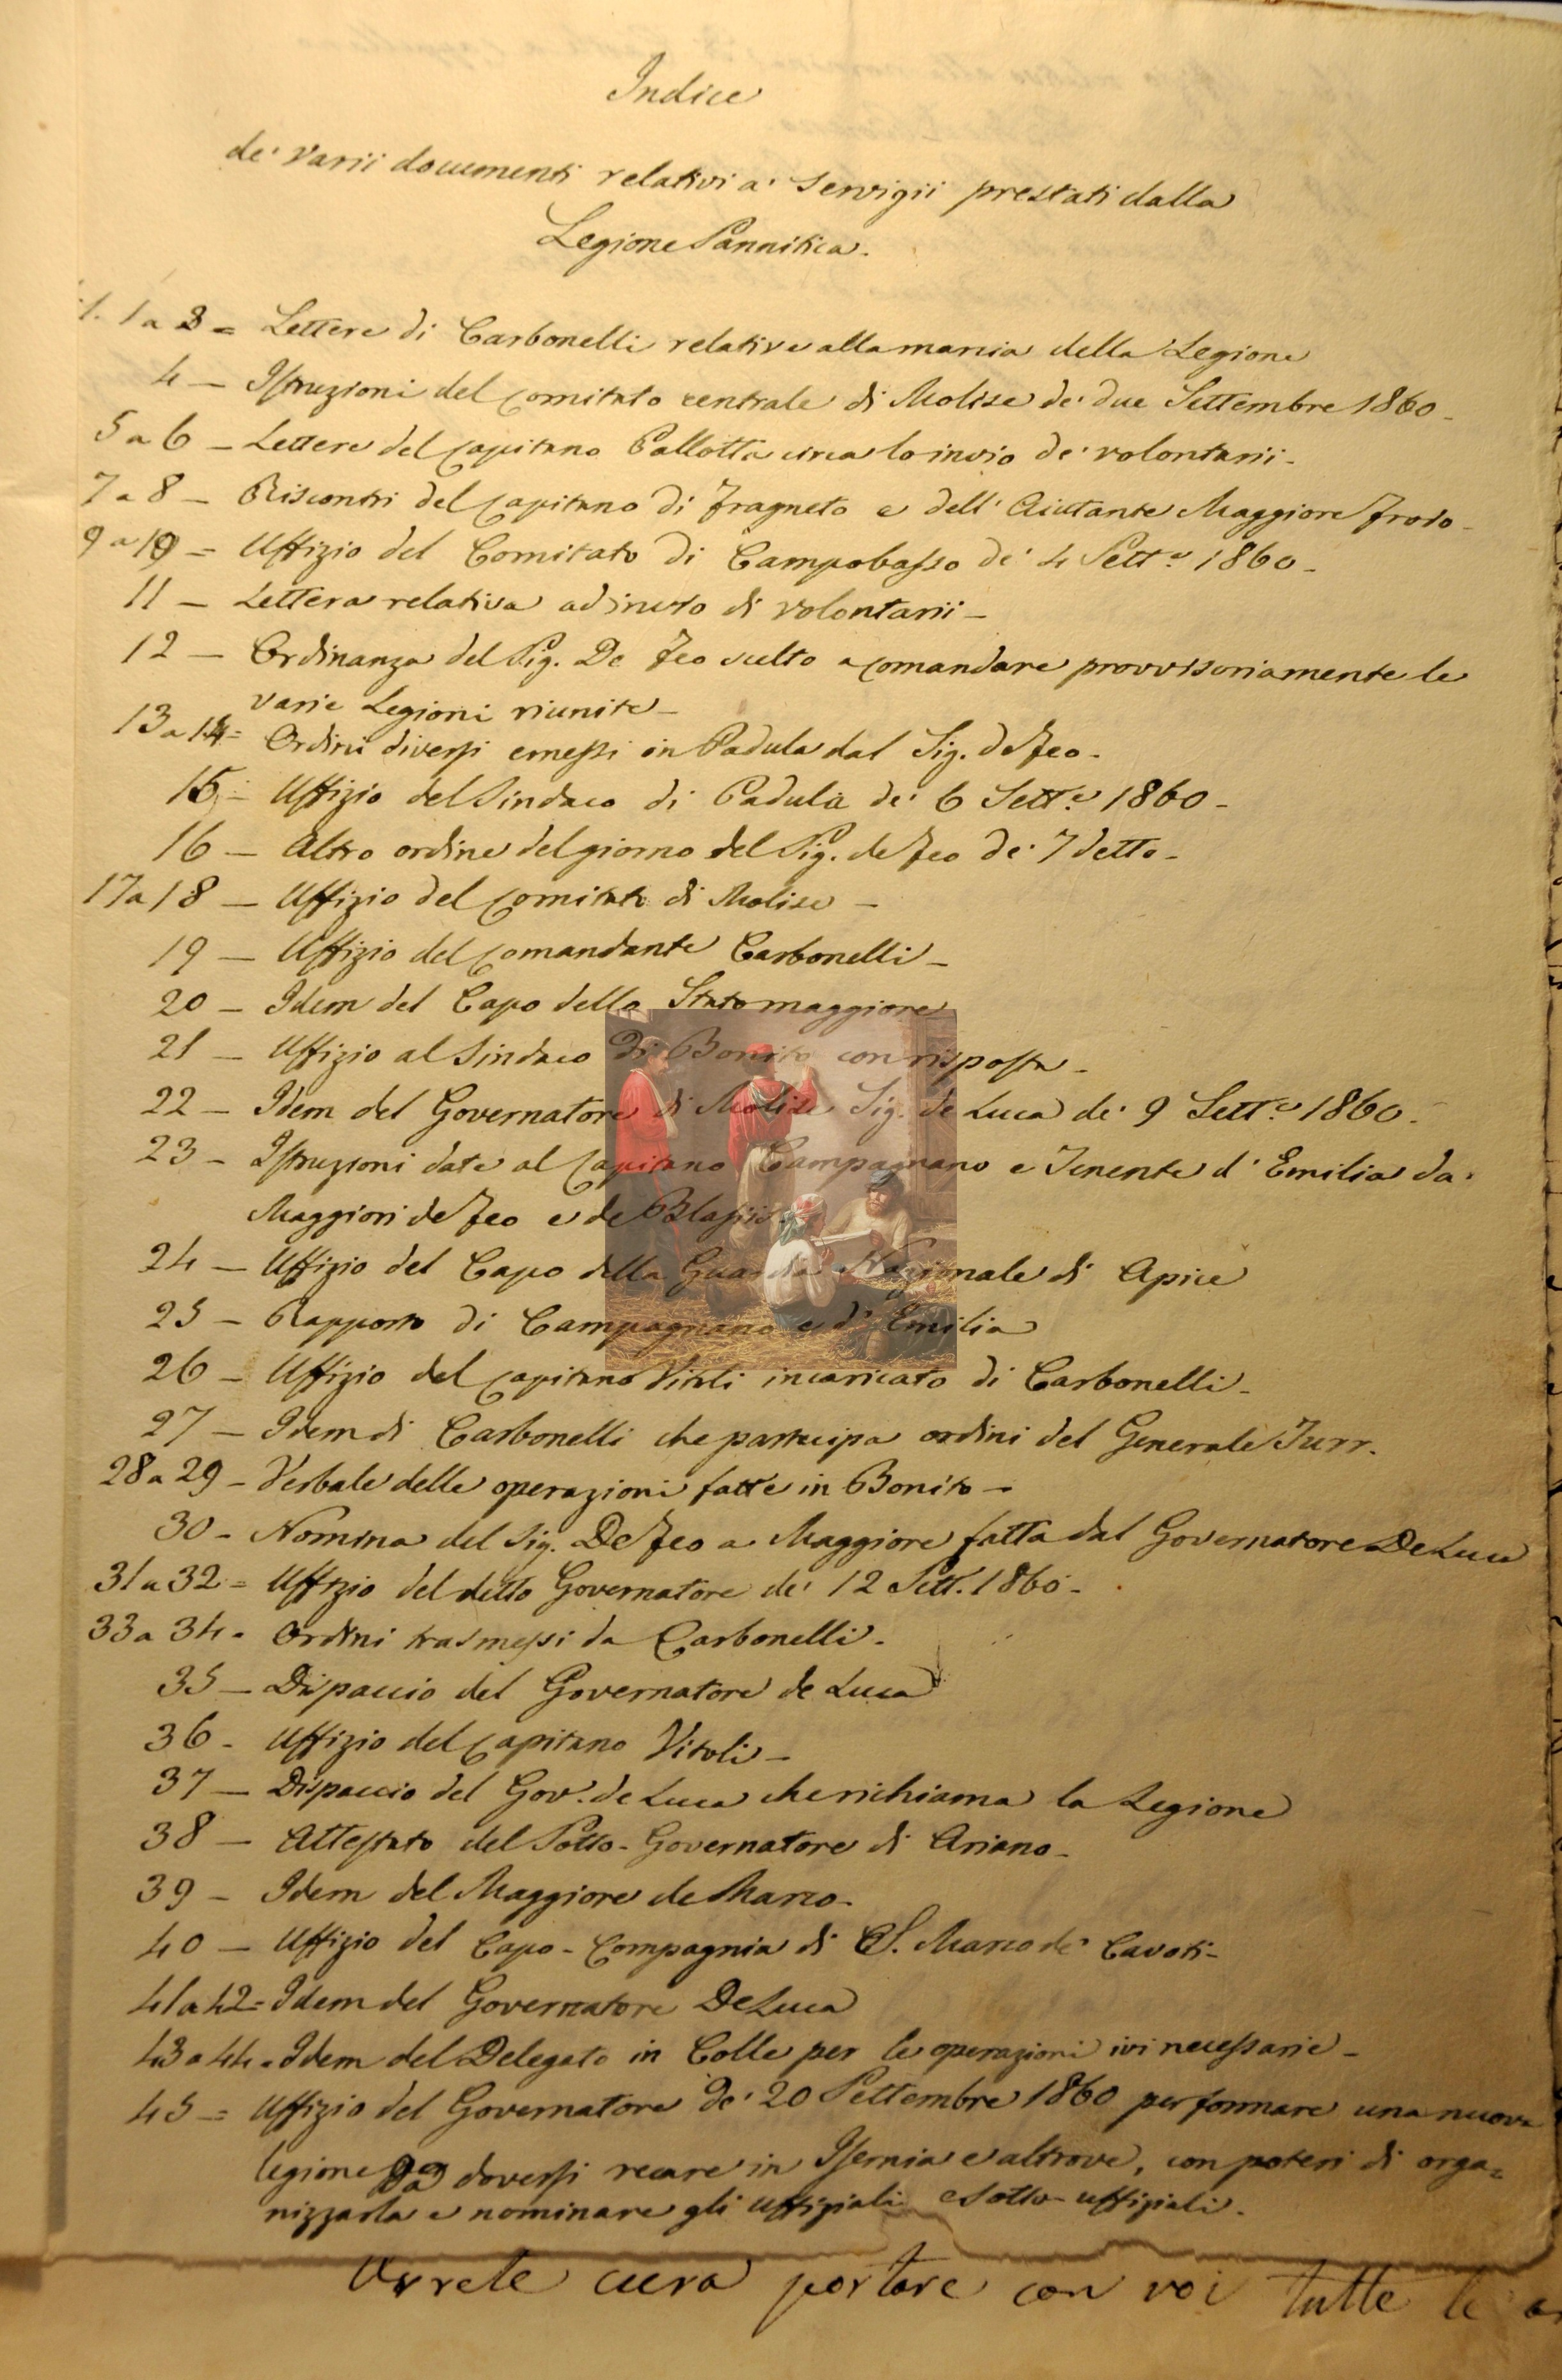 Indice
de' varii documenti relativi a' servigii prestati dalla
Legione Sannitica.
1 a 3 = Lettere di Carbonelli relative alla marcia della Legione
4 — Istruzioni del Comitato centrale di Molise de' due Settembre 1860 -
5 a 6 — Lettere del Capitano Pallotta circa lo invio de' volontarii -
7 a 8 — Riscontri del Capitano di Fragneto e dell' Aiutante Maggiore
9 a 10 = Uffizio del Comitato di Campobasso de' 4 Sett.e 1860 -
11 — Lettera relativa ad invio di volontarii —
12 — Ordinanza del Sig. De Feo scelto a comandare provvisoriamente le
varie Legioni riunite —
13 a 14 = Ordini diversi emessi in Padula dal Sig. de Feo -
15 - Uffizio del Sindaco di Padula de' 6 Sett.e 1860 -
16 — Altro ordine del giorno del Sig. de Feo de' 7 detto -
17 a 18 — Uffizio del Comitato di Molise —
19 — Uffizio del Comandante Carbonelli —
20 — Idem del Capo dello Stato maggiore
21 — Uffizio al Sindaco di Bonito con risposta -
22 — Idem del Governatore di Molise Sig. de Luca de' 9 Sett.e 1860 .
23 — Istruzioni date al Capitano Campagnano e Tenente d' Emilia da'
Maggiori de Feo e de Blasiis
24 — Uffizio del Capo della Guardia Nazionale di Apice
25 — Rapporto di Campagnano e d' Emilia
26 — Uffizio del Capitano Vitoli incaricato di Carbonelli -
27 — Idem di Carbonelli che partecipa ordini del Generale Turr.
28 a 29 - Verbale delle operazioni fatte in Bonito —
30 - Nomina del Sig. De Feo a Maggiore fatta dal Governatore De Luca
31 a 32 = Uffizio del detto Governatore de' 12 Sett. 1860 -
33 a 34 - Ordini trasmessi da Carbonelli -
35 — Dispaccio del Governatore de Luca
36 - Uffizio del Capitano Vitoli —
37 — Dispaccio del Gov.e de Luca che richiama la Legione
38 — Attestato del Sotto-Governatore di Ariano -
39 — Idem del Maggiore de Marco -
40 — Uffizio del Capo-Compagnia di S. Marco de' Cavoti -
41 a 42 = Idem del Governatore De Luca
43 a 44 = Idem del Delegato in Colle per le operazioni ivi necessarie —
45 = Uffizio del Governatore de' 20 Settembre 1860 per formare una nuova
legione da doversi recare in Isernia e altrove, con poteri di orga=
nizzarla e nominare gli uffiziali e sotto-uffiziali.
Avrete cura portare con voi tutte le